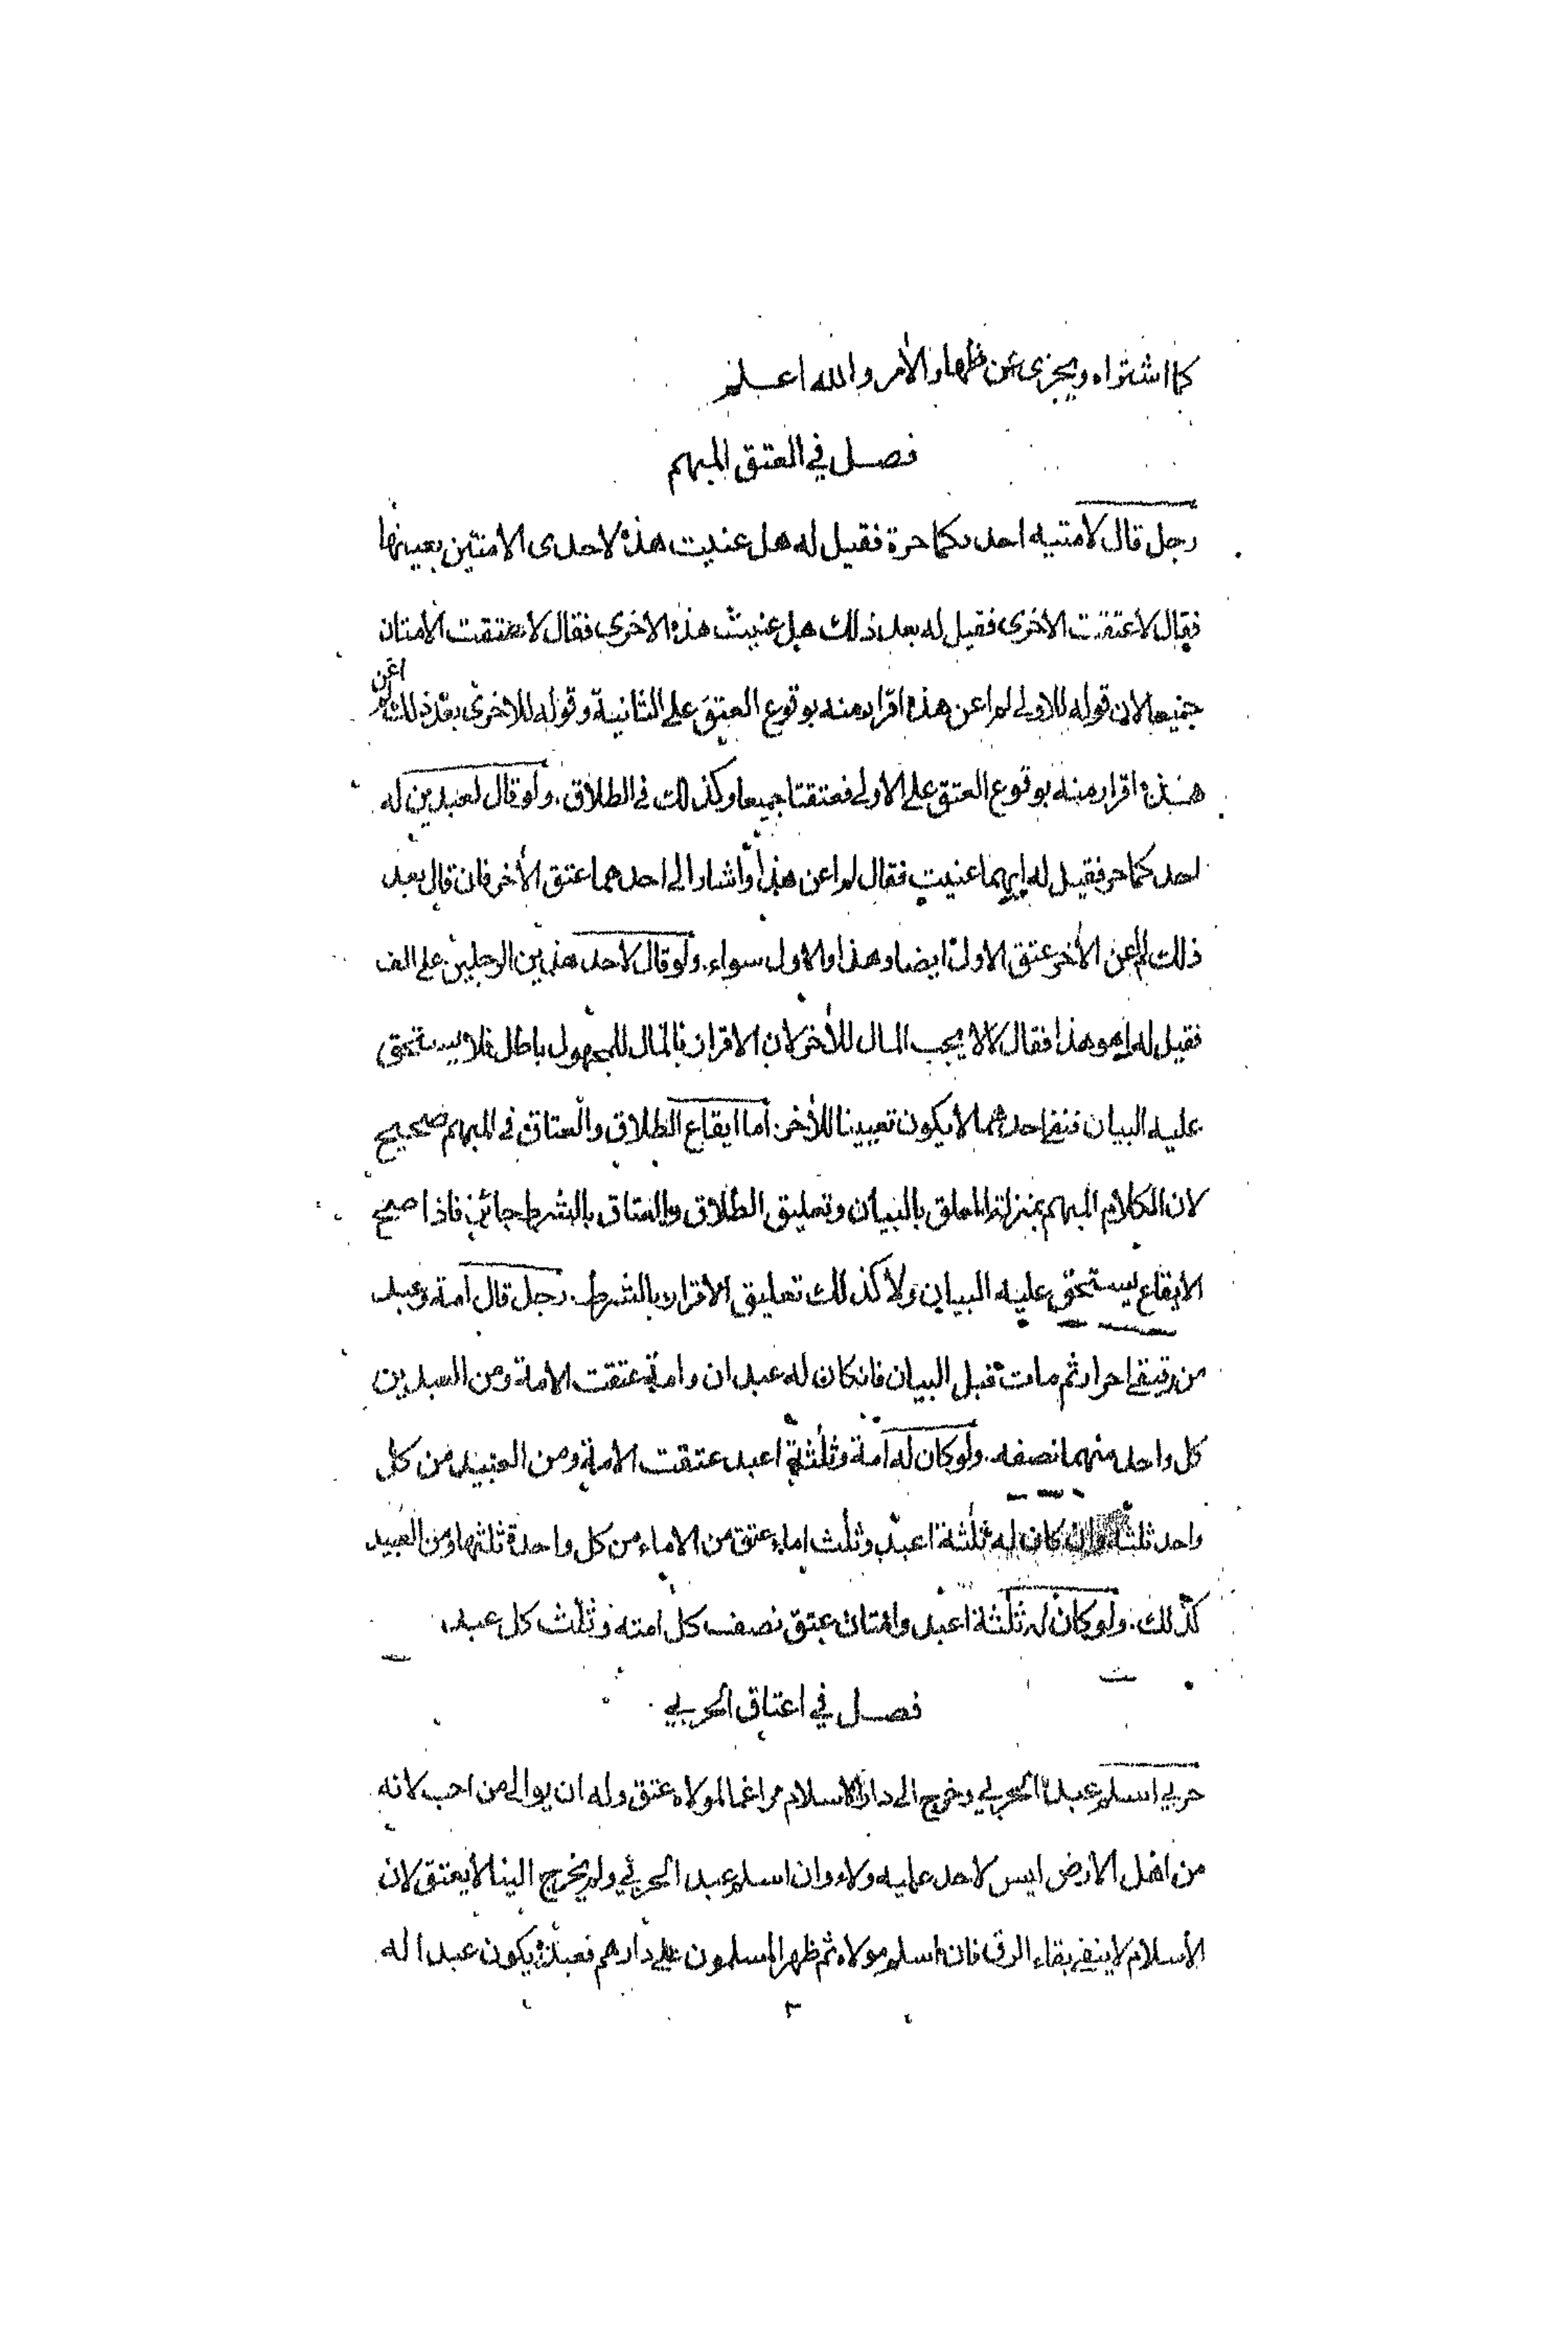 كما اشتراه ويجزى عن ظهار الأمر والله اعلم
فصل في العتق المبهم
رجل قال لامتيه احدىكما حرة فقيل له هل عنيت هذه لاحدى الامتين بعينها
فقال لا عتقت الاخرى فقيل له بعد ذلك هل عنيت هذه الاخرى فقال لا عتقت الامتان
جميعا لان قوله للاولى لم اعن هذه اقرار منه بوقوع العتق على الثانية وقوله للاخرى بعد ذلك لم اعن
هذه اقرار منه بوقوع العتق على الاولى فعتقتا جميعا وكذلك في الطلاق . ولو قال لعبدين له
احدكما حر فقيل له ايهما عنيت فقال لم اعن هذا واشار الى احدهما عتق الأخر فان قال بعد
ذلك لم اعن الأخر عتق الاول ايضا وهذا والاول سواء . ولو قال لاحد هذين الرجلين على الف
فقيل له اهو هذا فقال لا لا يجب المال للأخر لان الاقرار بالمال للمجهول باطل فلا يستحق
عليه البيان فنفى احدهما لا يكون تعيينا للأخر . أما ايقاع الطلاق والعتاق في المبهم صحيح
لان الكلام المبهم بمنزلة المعلق بالبيان وتعليق الطلاق والعتاق بالشرط جائز فاذا صح
الايقاع يستحق عليه البيان ولا كذلك تعليق الاقرار بالشرط . رجل قال امة وعبد
من رقيقى احرار ثم مات قبل البيان فانكان له عبدان وامة عتقت الامة ومن العبدين
كل واحد منهما نصفه . ولو كان له امة وثلثة اعبد عتقت الامة ومن العبيد من كل
واحد ثلثه وان كان له ثلثة اعبد وثلث اماء عتق من الاماء من كل واحدة ثلثها ومن العبيد
كذلك . ولو كان له ثلثة اعبد وامتان عتق نصف كل امته وثلث كل عبد .
فصل في اعتاق الحربي
حربي اسلم عبد الحربي وخرج الى دار الاسلام مراغما لمولاه عتق وله ان يوالى من احب لانه
من اهل الارض ليس لاحد عليه ولاء وان اسلم عبد الحربي ولم يخرج الينا لا يعتق لان
الأسلام لا ينفى بقاء الرق فان اسلم مولاه ثم ظهر المسلمون على دارهم فعبده يكون عبدا له